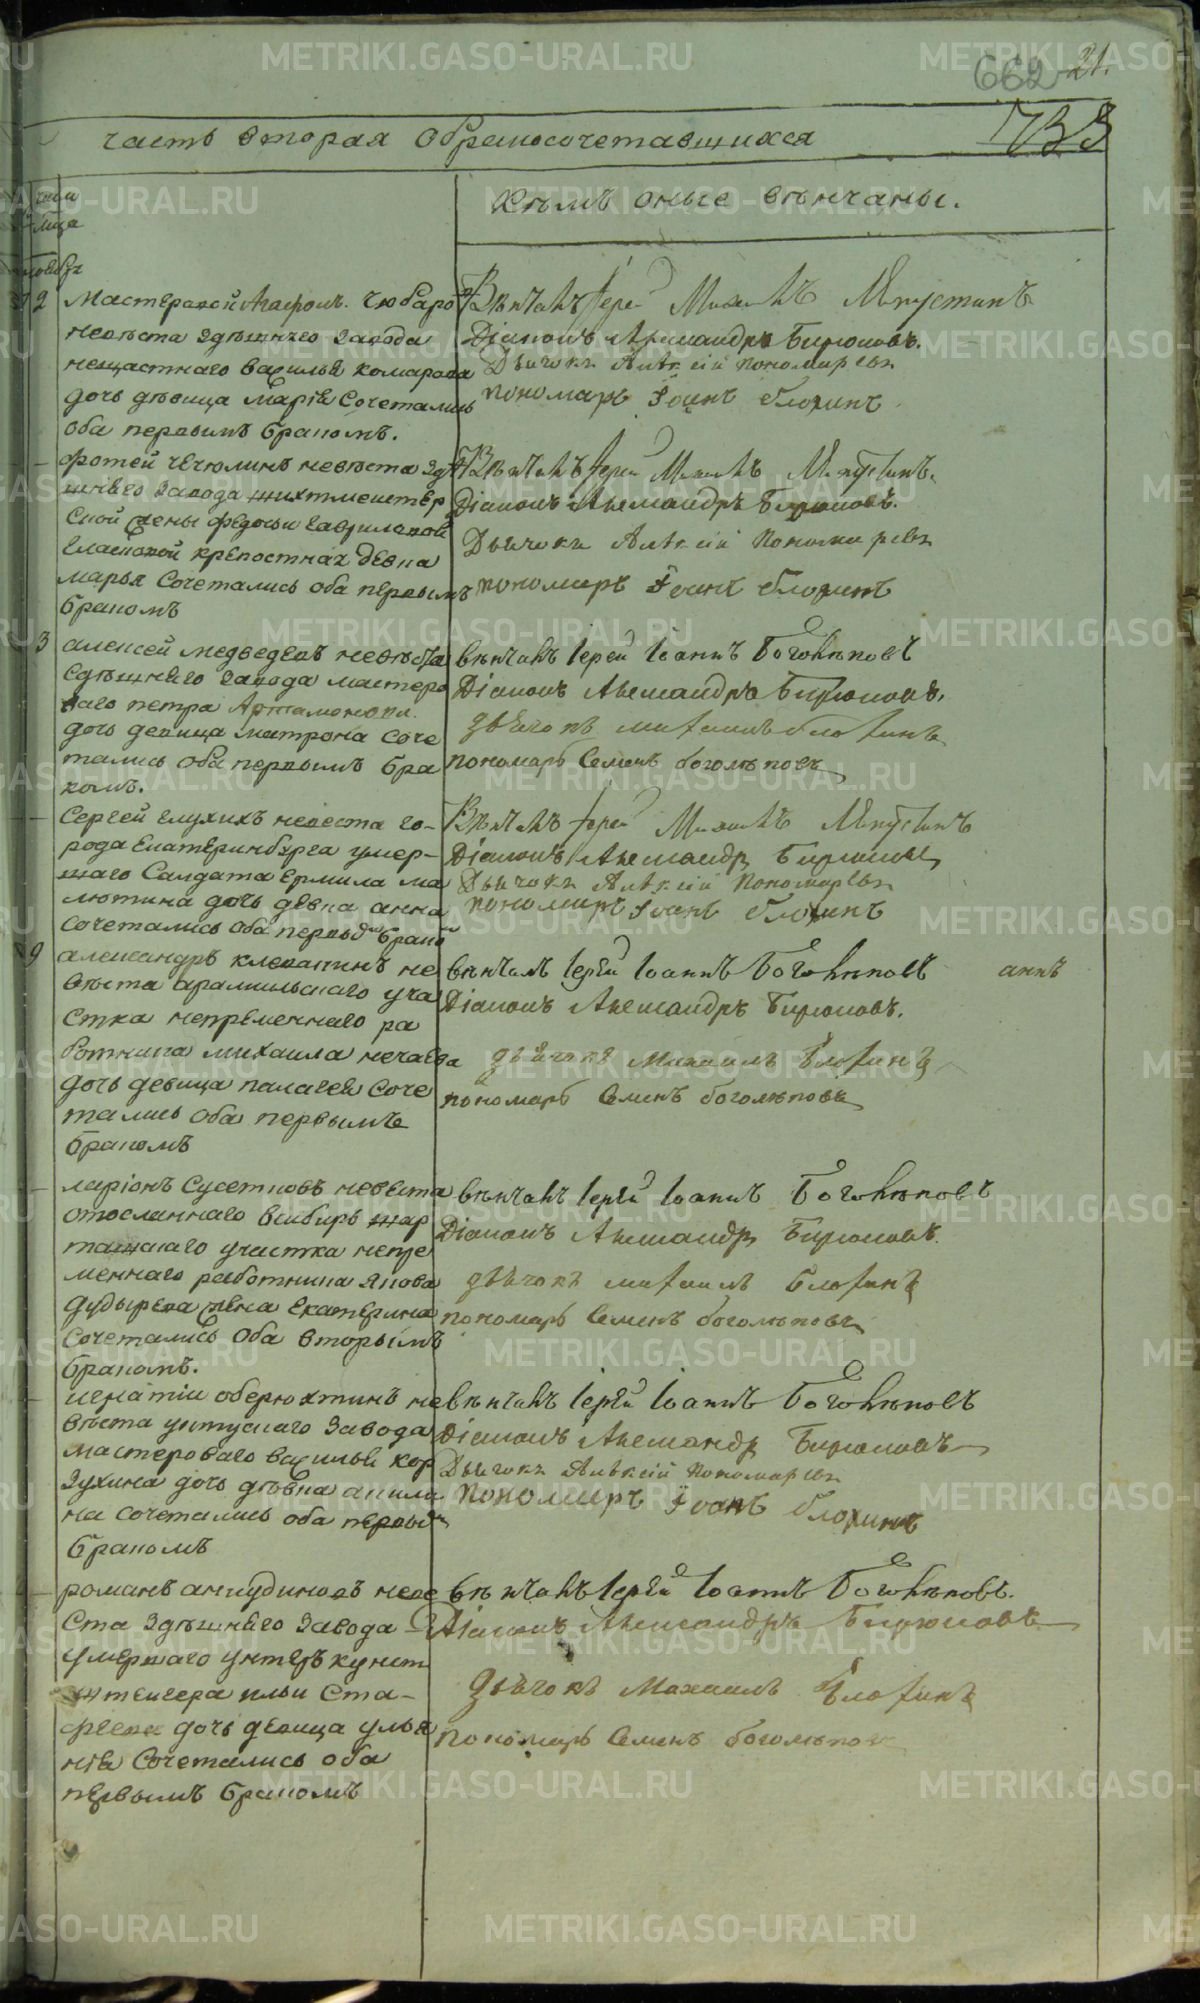 662 21.
733
часть вторая обракосочетавшихся
числа
мца
кѣмъ оные вѣнчаны.
ноября
2 мастеровой Агафонъ чюбаро
невѣста здѣшняго завода
нещастнаго василья комарова
дочь дѣвица марія сочетались
оба первымъ бракомъ.
Вѣнчалъ Іерей Михаилъ
Діаконъ Александръ Бирюковъ.
Дьячокъ Алѣксій Пономаревъ
пономарь Іоанъ блохинъ
фотей чечюлинъ невѣста здѣ
шняго завода шихтмейстер
ской жены федосьи гавриловой
крепостная девка
марья сочетались оба первымъ
бракомъ
Вѣнчалъ Іерей Михаилъ
Діаконъ Александръ Бирюковъ.
Дьячокъ Алѣксій Пономаревъ
пономарь Іоанъ блохинъ
3 алексей медведевъ невѣста
сдѣшняго завода мастеро
ваго петра Артамонова
дочь девица матрона соче
тались оба первымъ бра
комъ.
вѣнчалъ Іерей Іоаннъ Боголѣповъ
Діаконъ Александръ Бирюковъ.
дьячокъ михаилъ блохинъ
пономарь Семенъ боголѣповъ
Сергей глухихъ невеста го-
рода екатеринбурга умер-
шаго салдата ермила ма
лютина дочь девка анна
сочетались оба первымъ бракомъ
Вѣнчалъ Іерей Михаилъ
Діаконъ Александръ Бирюковъ
Дьячокъ Алѣксій Пономаревъ
пономарь Іоанъ блохинъ
9 александръ клепагинъ не
вѣста арамильскаго уча
стка непременнаго ра
ботника михаила нечаева
дочь девица палагея соче
тались оба первымъ
бракомъ
вѣнчалъ Іерей Іоаннъ Боголѣповъ
Діаконъ Александръ Бирюковъ.
дьячокъ Михаилъ блохинъ
пономарь Семенъ боголѣповъ
ларіонъ Сусетковъ невеста
отосланнаго всибирь шар
ташскаго участка непре
меннаго работника якова
дудырева жена екатерина
сочетались оба вторымъ
бракомъ.
вѣнчалъ Іерей Іоаннъ Боголѣповъ
Діаконъ Александръ Бирюковъ
дьячокъ михаилъ блохинъ
пономарь Семенъ боголѣповъ
игнатіи оберюхтинъ не
вѣста уктускаго завода
мастероваго василья кор
зухина дочь дѣвка акили
на сочетались оба первымъ
бракомъ
вѣнчалъ Іерей Іоаннъ Боголѣповъ
Діаконъ Александръ Бирюковъ
Дьячокъ Алѣксій Пономаревъ
пономарь Іоанъ блохинъ
романъ анкудиновъ неве
ста здѣшняго завода
умершаго унтеръ кунст
штейгера ильи Ста-
дочь девица улья
нія сочетались оба
первымъ бракомъ
вѣнчалъ Іерей Іоаннъ Боголѣповъ.
Діаконъ Александръ Бирюковъ
дьячокъ Михаилъ блохинъ
пономарь Семенъ боголѣповъ
METRIKI.GASO-URAL.RU